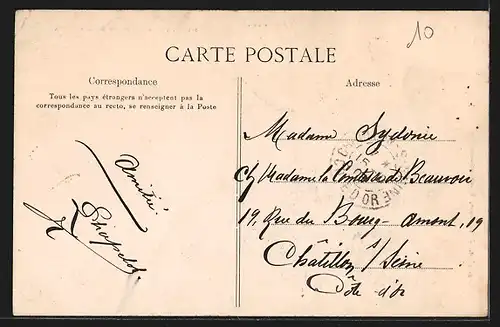 10
CARTE POSTALE
Correspondance
Tous les pays étrangers n'acceptent pas la
correspondance au recto, se renseigner à la Poste
Amitié
Adresse
Madame Sydonie
c/ Madame la Comtesse de Beauvoir
19, Rue du Bourg-amont, 19
Châtillon s/ Seine
Côte-d'or
D'OR